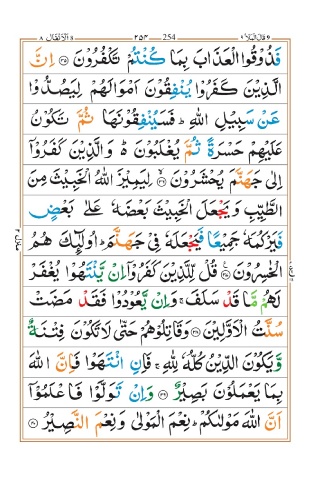 قال الملا ٩ 254 ٢٥٤ الانفال ٨
فَذُوْقُوا الْعَذَابَ بِمَا كُنْتُمْ تَكْفُرُوْنَ ۝٣٥ اِنَّ
الَّذِيْنَ كَفَرُوْا يُنْفِقُوْنَ اَمْوَالَهُمْ لِيَصُدُّوْا
عَنْ سَبِيْلِ اللّٰهِ ؕ فَسَيُنْفِقُوْنَهَا ثُمَّ تَكُوْنُ
عَلَيْهِمْ حَسْرَةً ثُمَّ يُغْلَبُوْنَ ؕ وَالَّذِيْنَ كَفَرُوْۤا
اِلٰى جَهَنَّمَ يُحْشَرُوْنَ ۝٣٦ لِيَمِيْزَ اللّٰهُ الْخَبِيْثَ مِنَ
الطَّيِّبِ وَيَجْعَلَ الْخَبِيْثَ بَعْضَهٗ عَلٰى بَعْضٍ
فَيَرْكُمَهٗ جَمِيْعًا فَيَجْعَلَهٗ فِيْ جَهَنَّمَ ؕ اُولٰٓئِكَ هُمُ
الْخٰسِرُوْنَ ۝٣٧ قُلْ لِّلَّذِيْنَ كَفَرُوْۤا اِنْ يَّنْتَهُوْا يُغْفَرْ
لَهُمْ مَّا قَدْ سَلَفَ ۚ وَاِنْ يَّعُوْدُوْا فَقَدْ مَضَتْ
سُنَّتُ الْاَوَّلِيْنَ ۝٣٨ وَقَاتِلُوْهُمْ حَتّٰى لَا تَكُوْنَ فِتْنَةٌ
وَّيَكُوْنَ الدِّيْنُ كُلُّهٗ لِلّٰهِ ۚ فَاِنِ انْتَهَوْا فَاِنَّ اللّٰهَ
بِمَا يَعْمَلُوْنَ بَصِيْرٌ ۝٣٩ وَاِنْ تَوَلَّوْا فَاعْلَمُوْۤا
اَنَّ اللّٰهَ مَوْلٰىكُمْ ؕ نِعْمَ الْمَوْلٰى وَنِعْمَ النَّصِيْرُ ۝٤٠